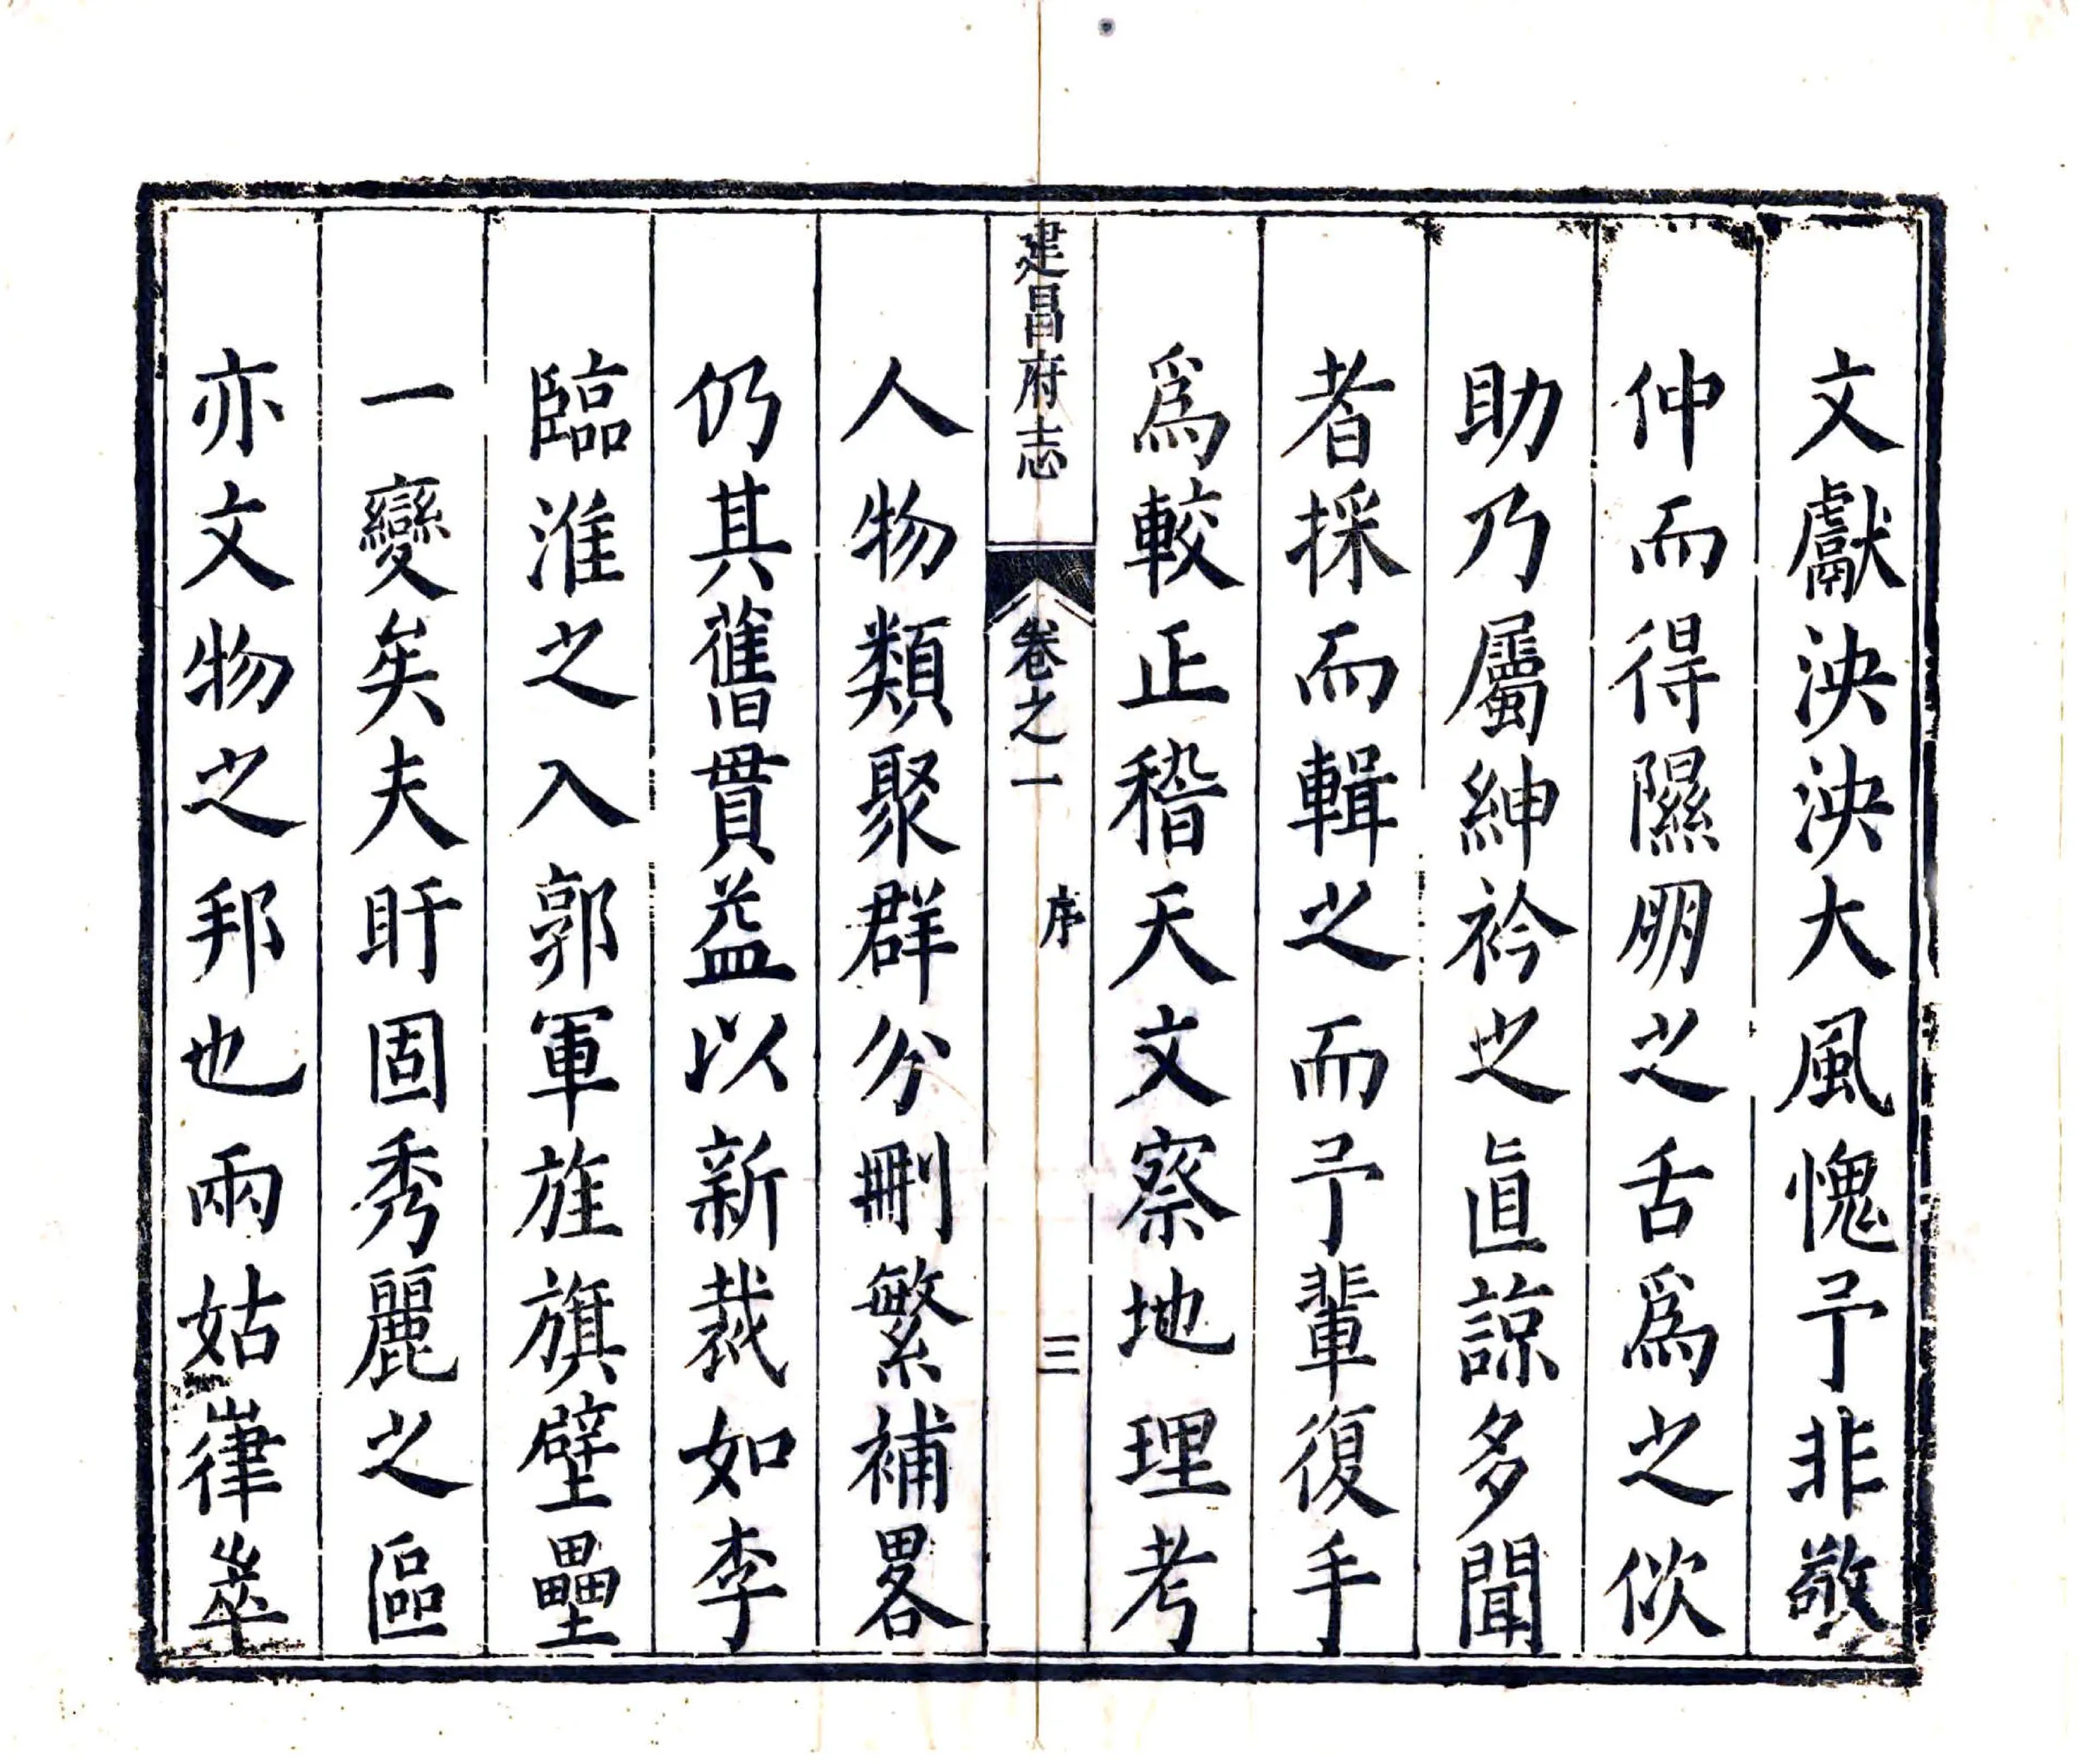 文獻泱泱大風愧予非敬
仲而得隰朋之舌爲之佽
助乃屬紳衿之之眞諒多聞
者採而輯之而予輩復手
爲較正稽天文察地理考
建昌府志
卷之一
序
三
人物類聚群分刪繁補畧
仍其舊貫益以新裁如李
臨淮之入郭軍旌旗壁壘
一變矣夫盱固秀麗之區
亦文物之邦也兩姑嵂崒